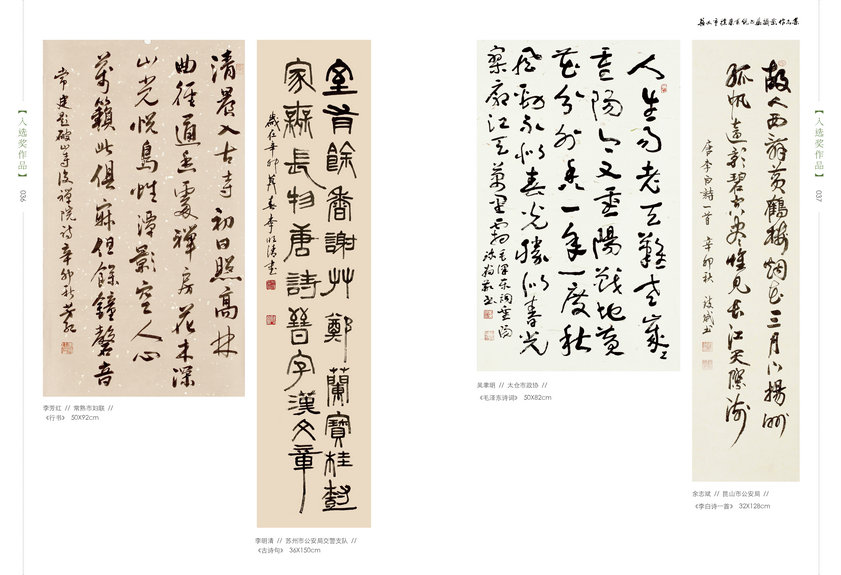 【入选奖作品】
036
清晨入古寺初日照高林
曲径通幽處禅房花木深
山光悦鳥性潭影空人心
萬籟此俱寂但餘鐘磬音
常建题破山寺後禅院詩辛卯秋芳红
李芳红 // 常熟市妇联 //
《行书》 50X92cm
室有餘香謝艸鄭蘭竇桂樹
家無長物唐詩晉字漢文章
歲在辛卯李明清書
李明清 // 苏州市公安局交警支队 //
《古诗句》 36X150cm
人生易老天難老歲歲
重陽今又重陽戰地黄
花分外香一年一度秋
風勁不似春光勝似春光
寥廓江天萬里霜毛澤東詞重陽
吴聿明 // 太仓市政协 //
《毛泽东诗词》 50X82cm
故人西辞黄鶴樓烟花三月下揚州
孤帆遠影碧空盡惟見長江天際流
唐李白詩一首 辛卯秋 志斌书
余志斌 // 昆山市公安局 //
《李白诗一首》 32X128cm
【入选奖作品】
037